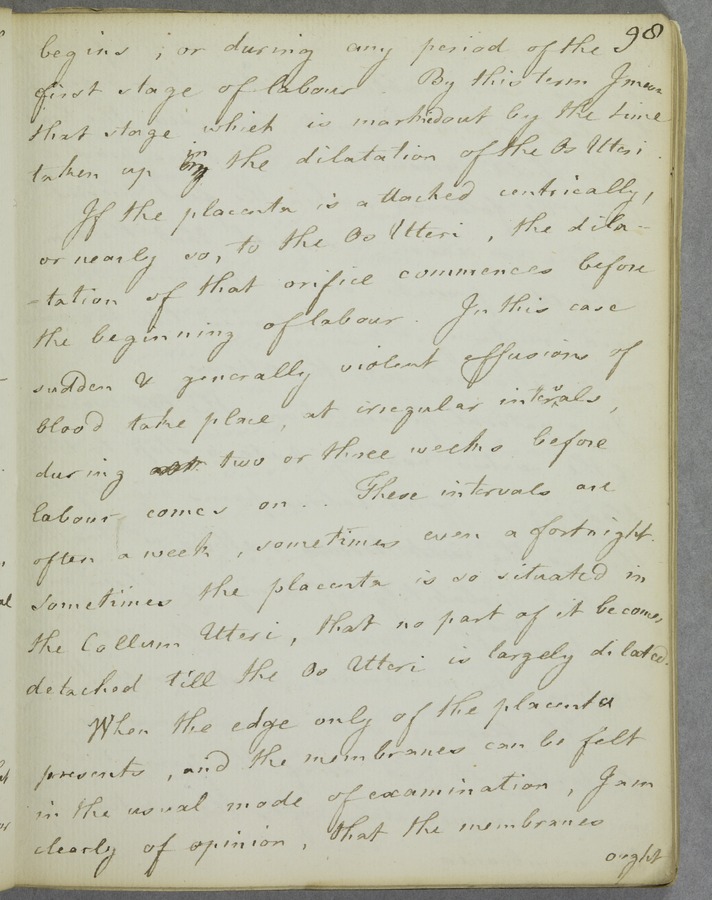 98
begins ; or during any period of the
first stage of labour . By this term I mean
that stage which is marked out by the time
taken up in the dilatation of the Os Uteri .
If the placenta is attached centrically,
or nearly so, to the Os Uteri , the dila-
-tation of that orifice commences before
the beginning of labour . In this case
sudden & generally violent effusions of
blood take place, at irregular intervals,
during two or three weeks before
labour comes on . . These intervals are
often a week , sometimes even a fortnight.
sometimes the placenta is so situated in
the Collum Uteri , that no part of it becomes
detached till the Os Uteri is largely dilated.
When the edge only of the placenta
presents , and the membranes can be felt
in the usual mode of examination , I am
clearly of opinion , that the membranes
ought